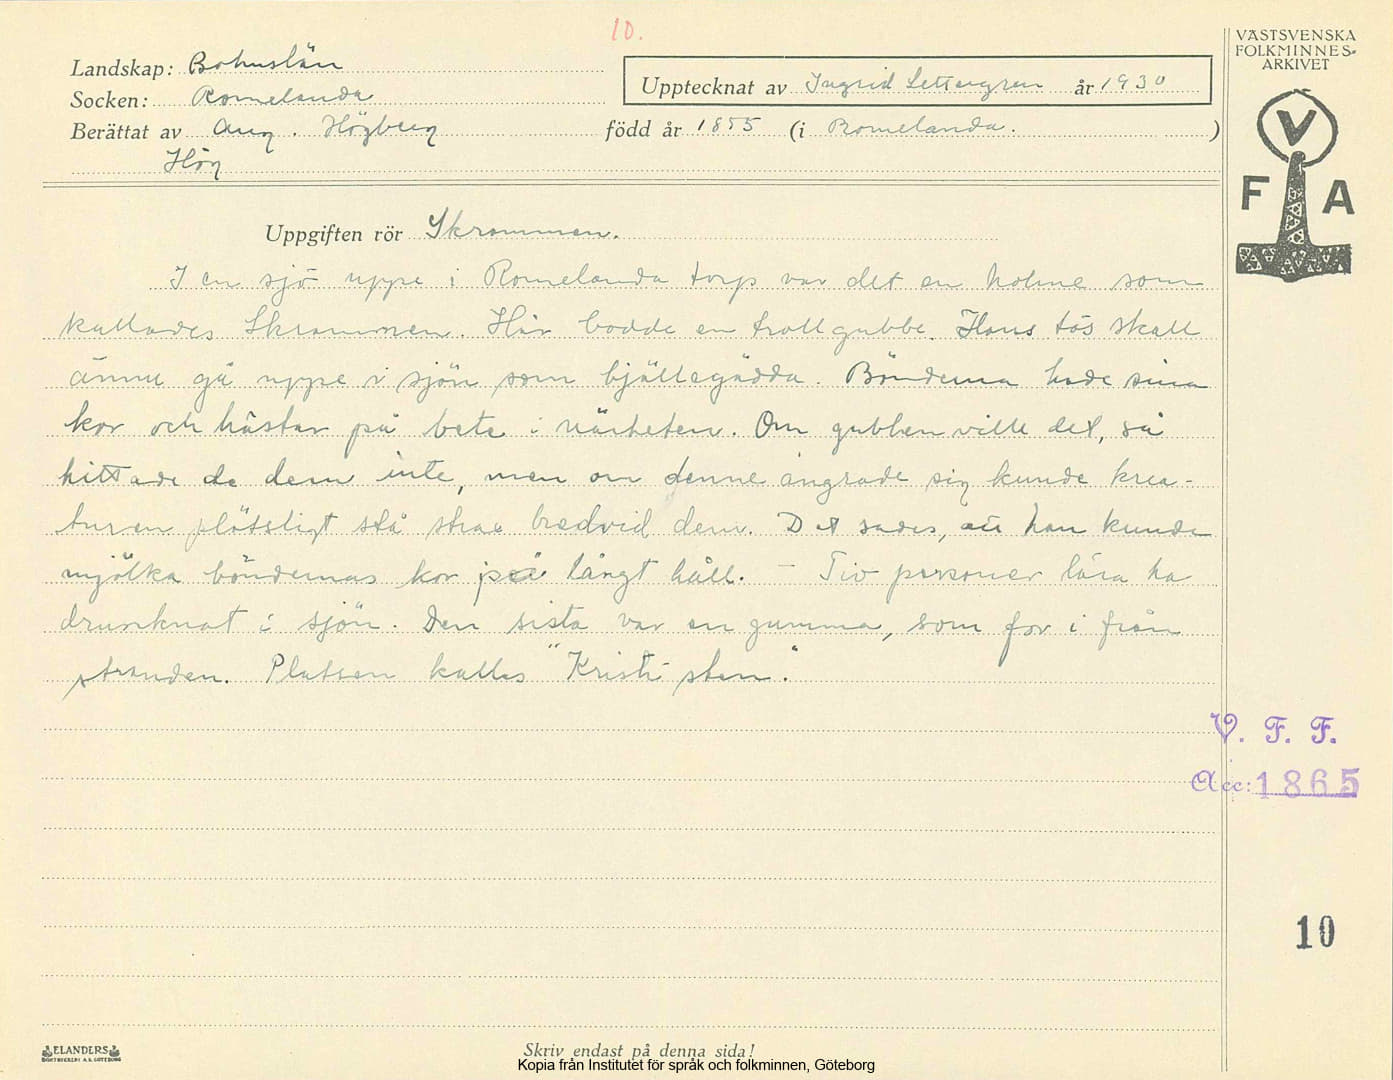 10.
VÄSTSVENSKA
FOLKMINNES-
ARKIVET
Landskap: Bohuslän
Upptecknat av Ingrid Settergren år 1930
Socken: Romelanda
Berättat av Aug. Högberg född år 1855 (i Romelanda.)
Hög
V
F A
Uppgiften rör Skrommen.
I en sjö uppe i Romelanda torp var det en holme som
kallades Skrommen. Här bodde en trollgubbe. Hans tös skall
ännu gå uppe i sjön som bjällegädda. Bönderna hade sina
kor och hästar på bete i närheten. Om gubben ville det, så
hittade de dem inte, men om denne ångrade sig kunde krea-
turen plötsligt stå strax bredvid dem. Det sades, att han kunde
mjölka böndernas kor på långt håll. – Tio personer lära ha
drunknat i sjön. Den sista var en gumma, som for i från
stranden. Platsen kallas "Kristi sten."
V. F. F.
Acc: 1865
10
ELANDERS
BOKTRYCKERI A.B. GÖTEBORG
Skriv endast på denna sida!
Kopia från Institutet för språk och folkminnen, Göteborg